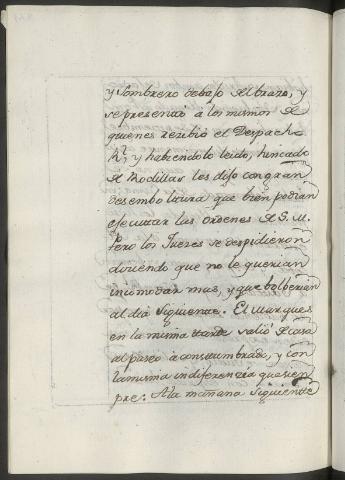 y Sombrero debajo del brazo, y
se presentó à los mismos de
quienes recibió el Despacho
Rl, y habiendolo leido, hincado
de Rodillas les dijo con gran
desemboltura que bien podian
ejecutar las ordenes de S. M.
Pero los Jueces se despidieron
diciendo que no le querian
incomodar mas, y que bolberian
al dia siguiente. El Marques
en la misma tarde salió de casa
al paseo à constumbrado, y con
la misma indiferenzia que siem
pre: A la mañana siguiente